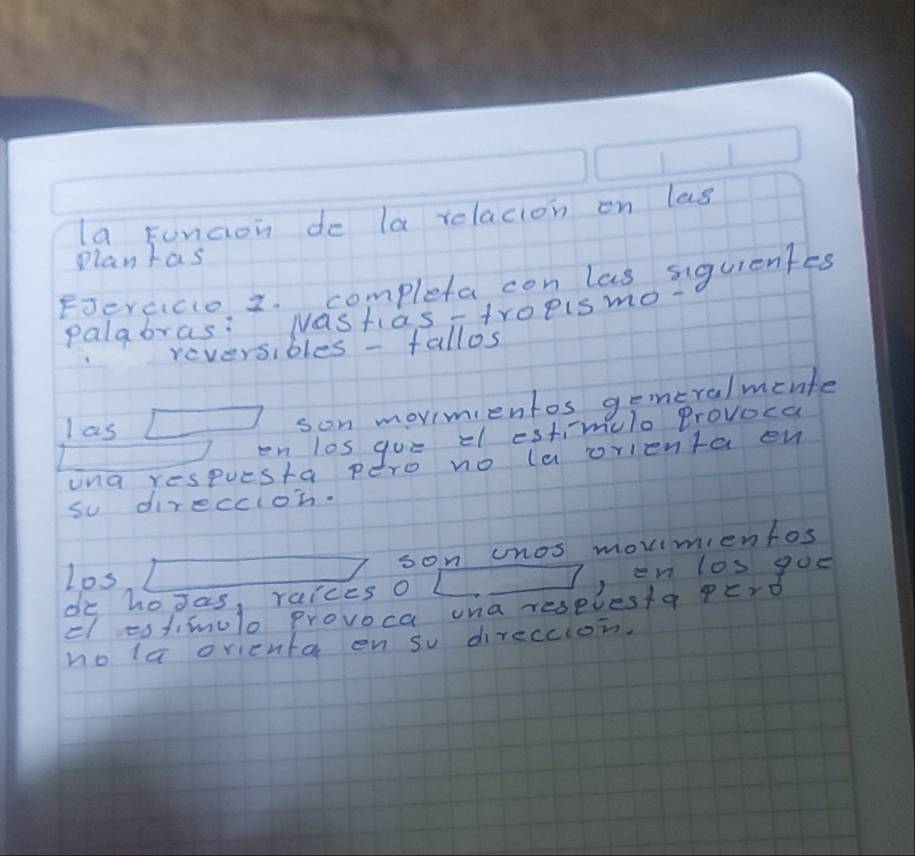 la Función de la relación en las
plantas
Ejercicio 2. completa con las siguientes
palabras: Nastias - tropismo -
reversibles - tallos
las son movimientos generalmente
en los que el estimulo provoca
una respuesta pero no la orienta en
su dirección.
los son unos movimientos
de hojas, raíces o , en los que
el estimulo provoca una respuesta pero
no la orienta en su dirección.